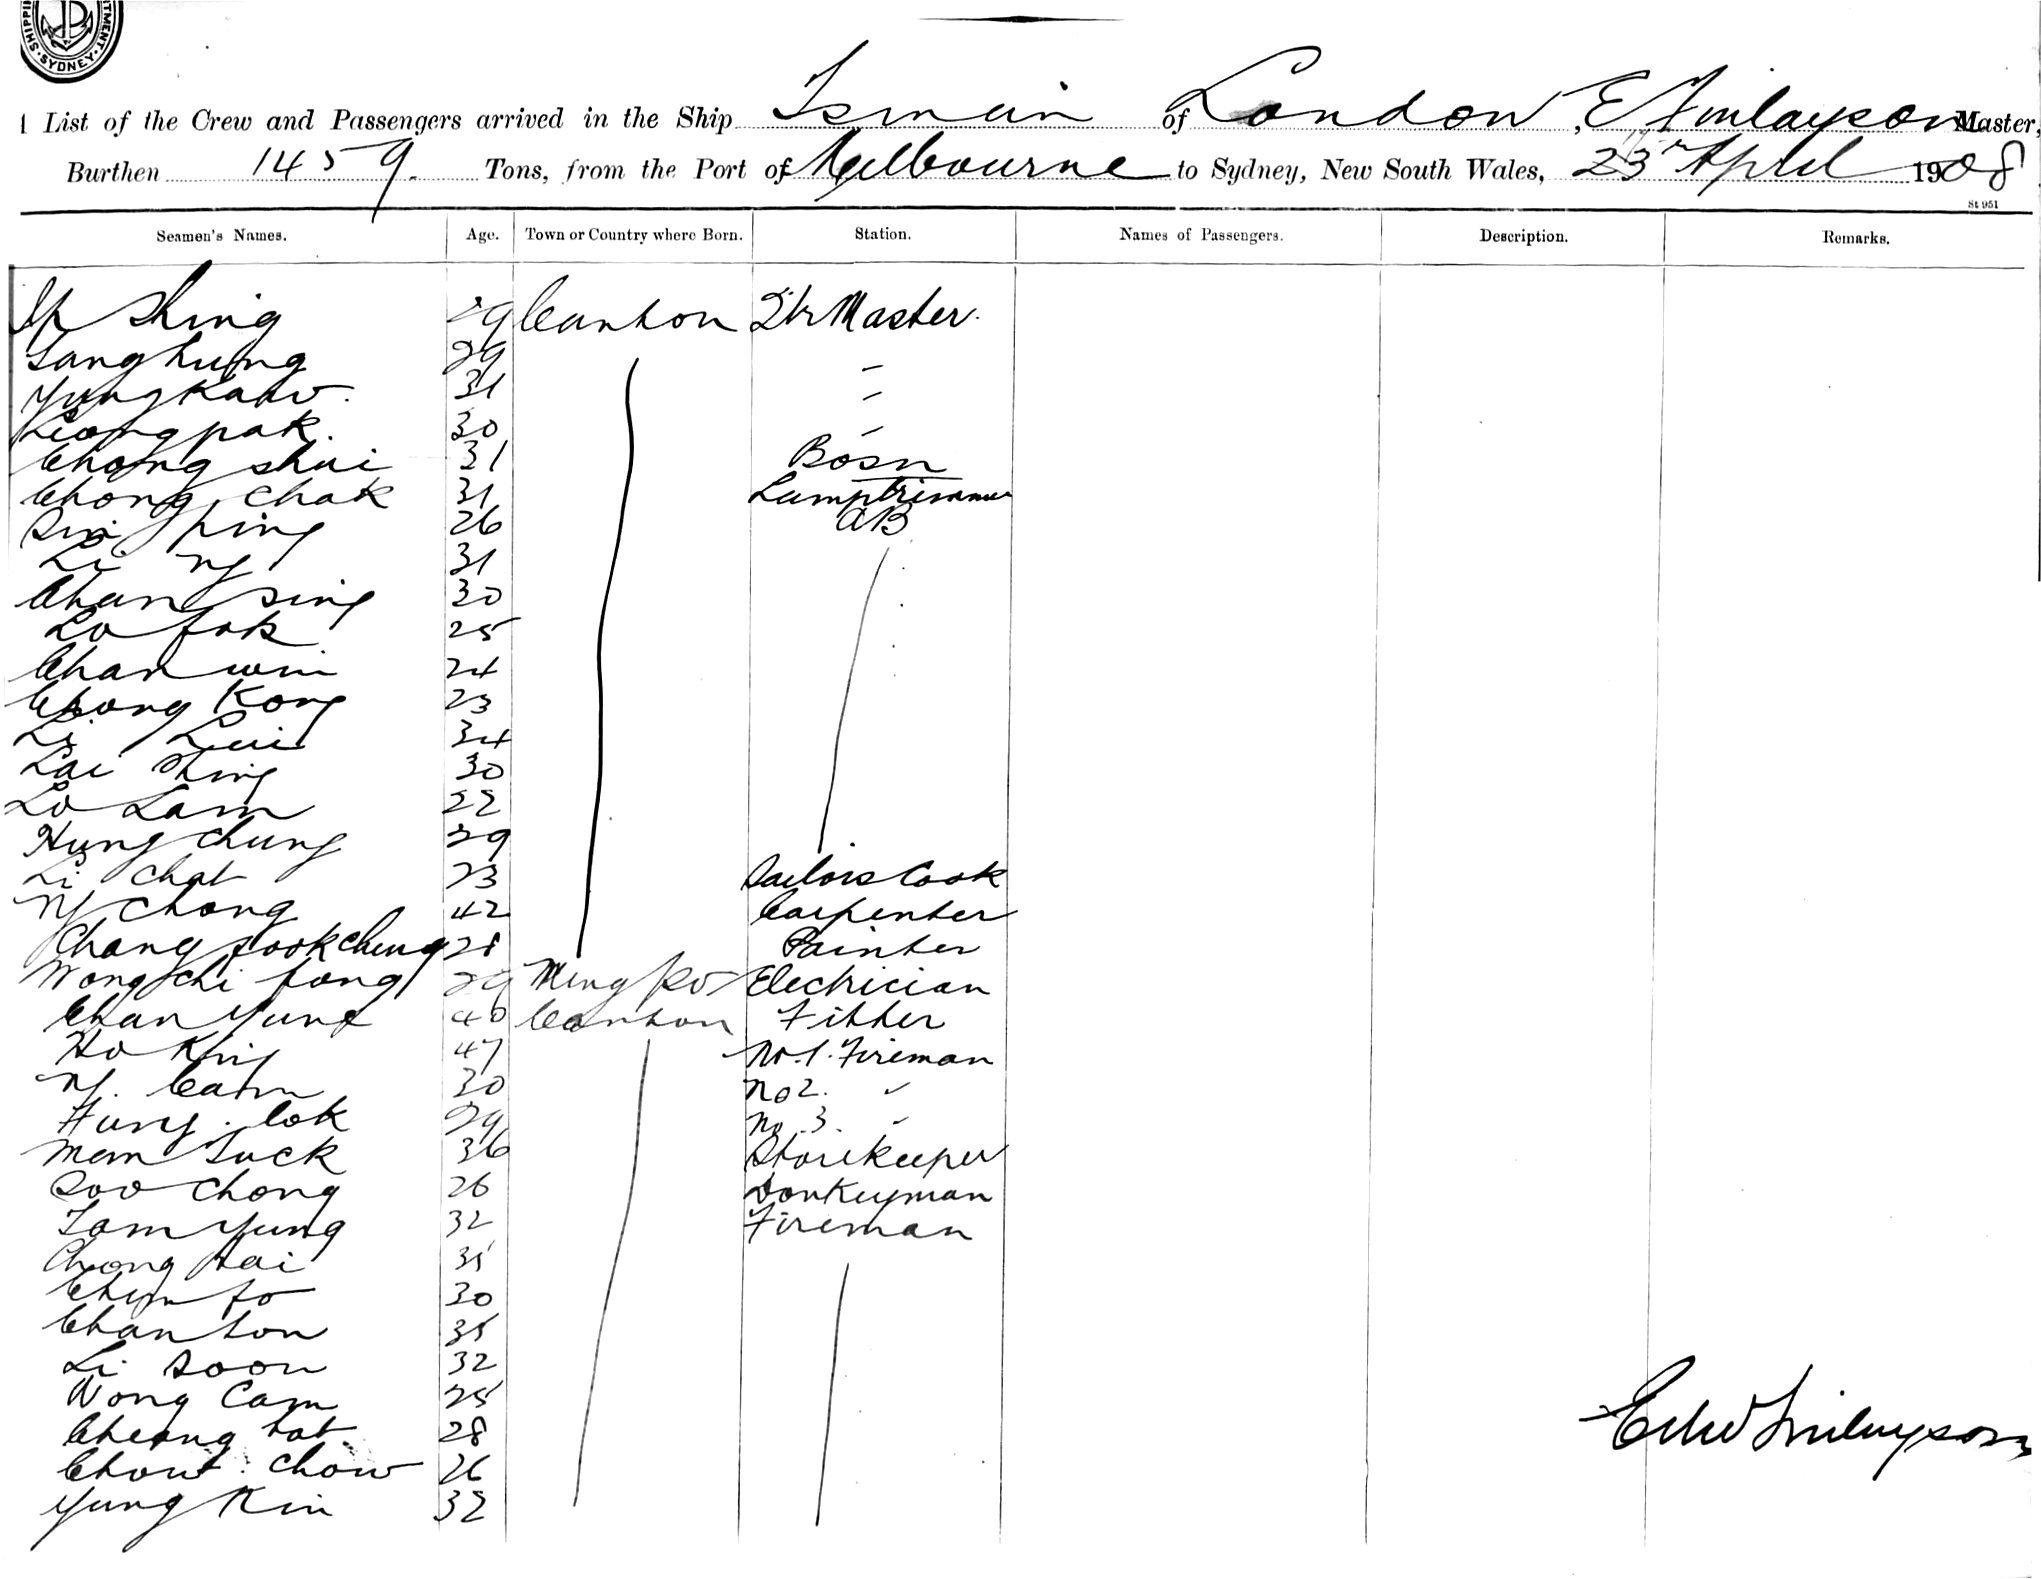 SHIPPING DEPARTMENT SYDNEY
A List of the Crew and Passengers arrived in the Ship Tsinan of London, E Finlayson Master,
Burthen 1459 Tons, from the Port of Melbourne to Sydney, New South Wales, 23rd April 1908
St 951
Seamen's Names. Age. Town or Country where Born. Station. Names of Passengers. Description. Remarks.
Ip Shing 29 Canton Qtr Master.
Sang hung 29 "
Yung Kaw. 31 "
Leong pak. 30 "
Chong shui 31 Bosn
Chong Chak 31 Lamptrimmer
Sui ping 26 AB
Li Ng 31
Chan sing 30
Lo fok 25
Chan win 24
Chong Kong 23
Li Lui 34
Lai Shing 30
Lo Lam 22
Hung Chung 29
Li Chat 23 Sailors Cook
Ng Chong 42 Carpenter
Chang sook Cheung 28 Painter
Wong Chi fong 29 Ningpo Electrician
Chan Yung 40 Canton Fitter
Ho King 47 No. 1. Fireman
Ng. Cam 30 No 2. "
Fung. Cok 29 No. 3. "
Mam Suck 36 Storekeeper
Soo Chong 26 Donkeyman
Tam Yung 32 Fireman
Chong tai 35
Chun fo 30
Chan ton 35
Li Soon 32
Wong Cam 25
Cheong tat 28
Chow Chow 26
Yung Kin 32
Edw Finlayson